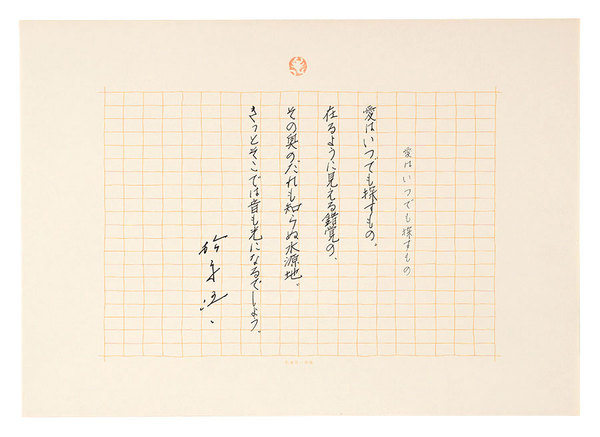 愛はいつでも探すもの
愛はいつでも探すもの。
在るように見える錯覚の、
その奥のだれも知らぬ水源地。
きっとそこでは昔も光になるでしょう。